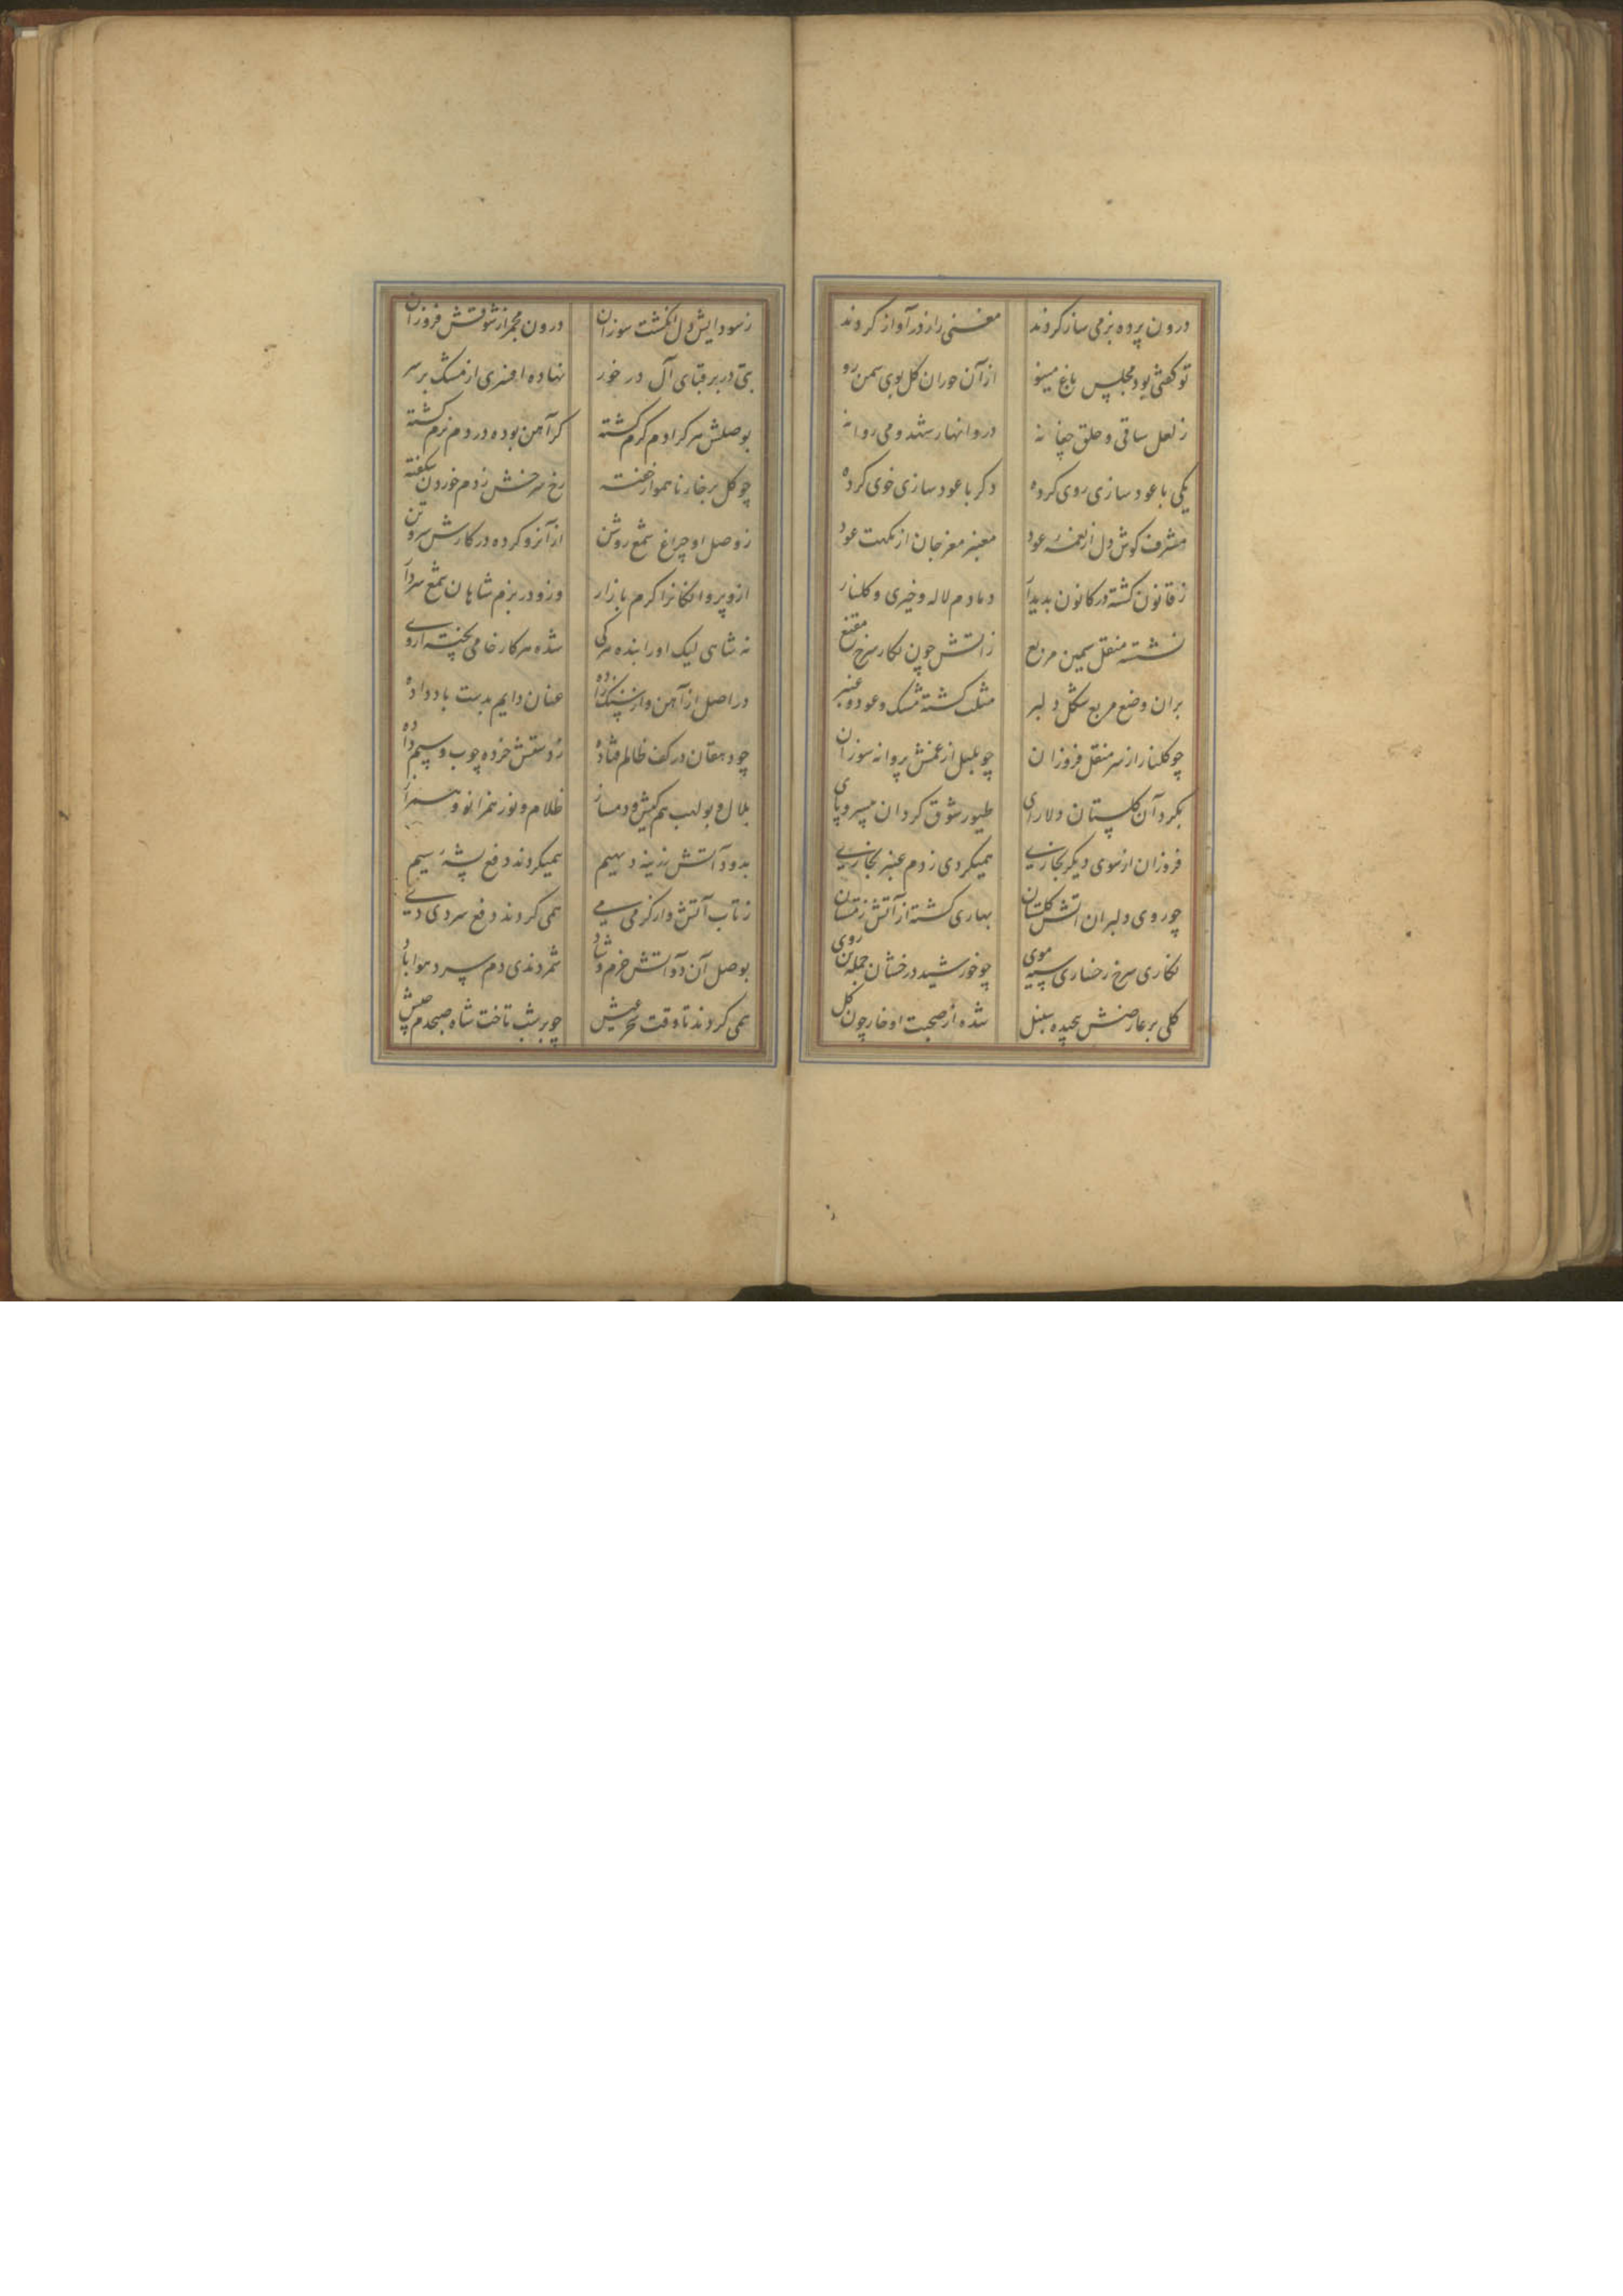 درون پرده بزمی ساز کردند معنی را ز در آواز کردند
تو کفتی بود مجلس باغ مینو از آن حوران کل بوی سمن رو
ز لعل ساقی و حلق چغانه در و انهار شهد و می روانه
یکی با عود سازی روی کرده دکر با عود سازی خوی کرده
مشرف کوش دل از نغمه عود معنبر مغز جان از نکهت عود
ز قانون کشته در کانون بدیدار دمادم لاله و خیری و کلنار
نشسته منقل سیمین مربع ز آتش چون نکار سرخ مقنع
بران وضع مربع شکل دلبر مثلث کشته مشک و عود و عنبر
چو کلنار از سر منقل فروزان چو بلبل از غمش پروانه سوزان
بکرد آن کلستان دلارای طیور شوق کردان بی سر و پای
فروزان از سوی دیکر بخاری همیکردی ز دم عنبر بخاری
چو روی دلبران آتش کلستان بهاری کشته از آتش زمستان
نکاری سرخ رخساری سیه موی چو خورشید درخشان جمله تن روی
کلی بر عارضش پیچیده سنبل شده از صحبت او خار چون کل
ز سودایش دل انکشت سوزان درون مجمر از شوقش فروزان
بتی در بر قبای آل در خور نهاده افسری از مشک بر سر
بوصلش هر کرا دم کرم کشته کر آهن بوده در دم نرم کشته
چو کل بر خار ناهموار خفته رخ سرخش ز دم خوردن شکفته
ز وصل او چراغ شمع روشن از آنرو کرده در کارش سر و تن
ازو پروانکانرا کرم بازار وزو در بزم شاهان شمع سردار
نه شاهی لیک او را بنده هر کی شده هر کار خامی پخته از وی
در اصل از آهن و از سنک زاده عنان دایم بدست باد داده
چو دهقان در کف ظالم فتاده ز دستش خرده چوب و سیم داده
بلال و بولهب هم کیش و دمساز ظلام و نور همزانو و همراز
بدود آتش ندینه دیهیم همیکردند دفع پشه سیم
ز تاب آتش وار کرمی می همی کردند دفع سردی دی
بوصل آن دو آتش خرم و شاد شمردندی دم سرد هوا باد
همی کردند تا وقت سحر عیش چو بر شب تاخت شاه صبحدم جیش